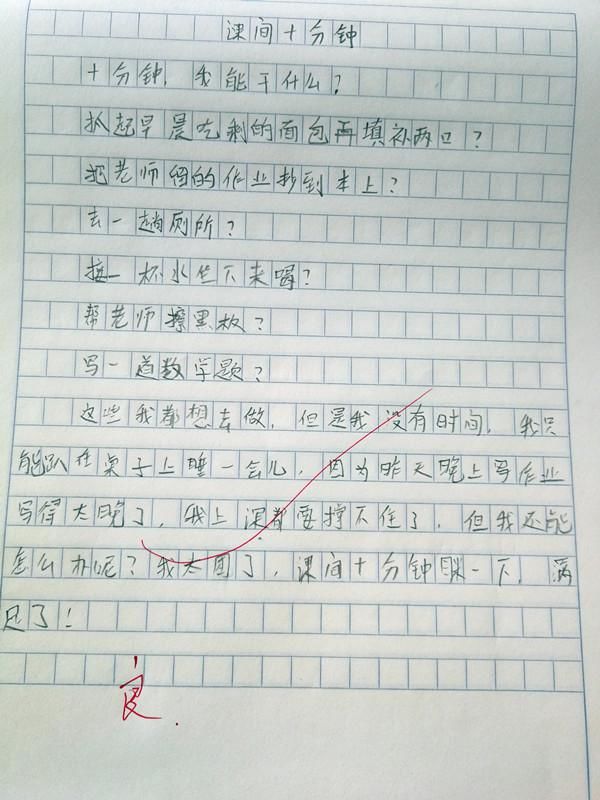 课间十分钟
十分钟，我能干什么？
抓起早晨吃剩的面包再填补两口？
把老师留的作业抄到本上？
去一趟厕所？
接一杯水坐下来喝？
帮老师擦黑板？
写一道数学题？
这些我都想去做，但是我没有时间，我只
能趴在桌子上睡一会儿，因为昨天晚上写作业
写得太晚了，我上课都要撑不住了，但我还能
怎么办呢？我太困了，课间十分钟眯一下，满
足了！
良.